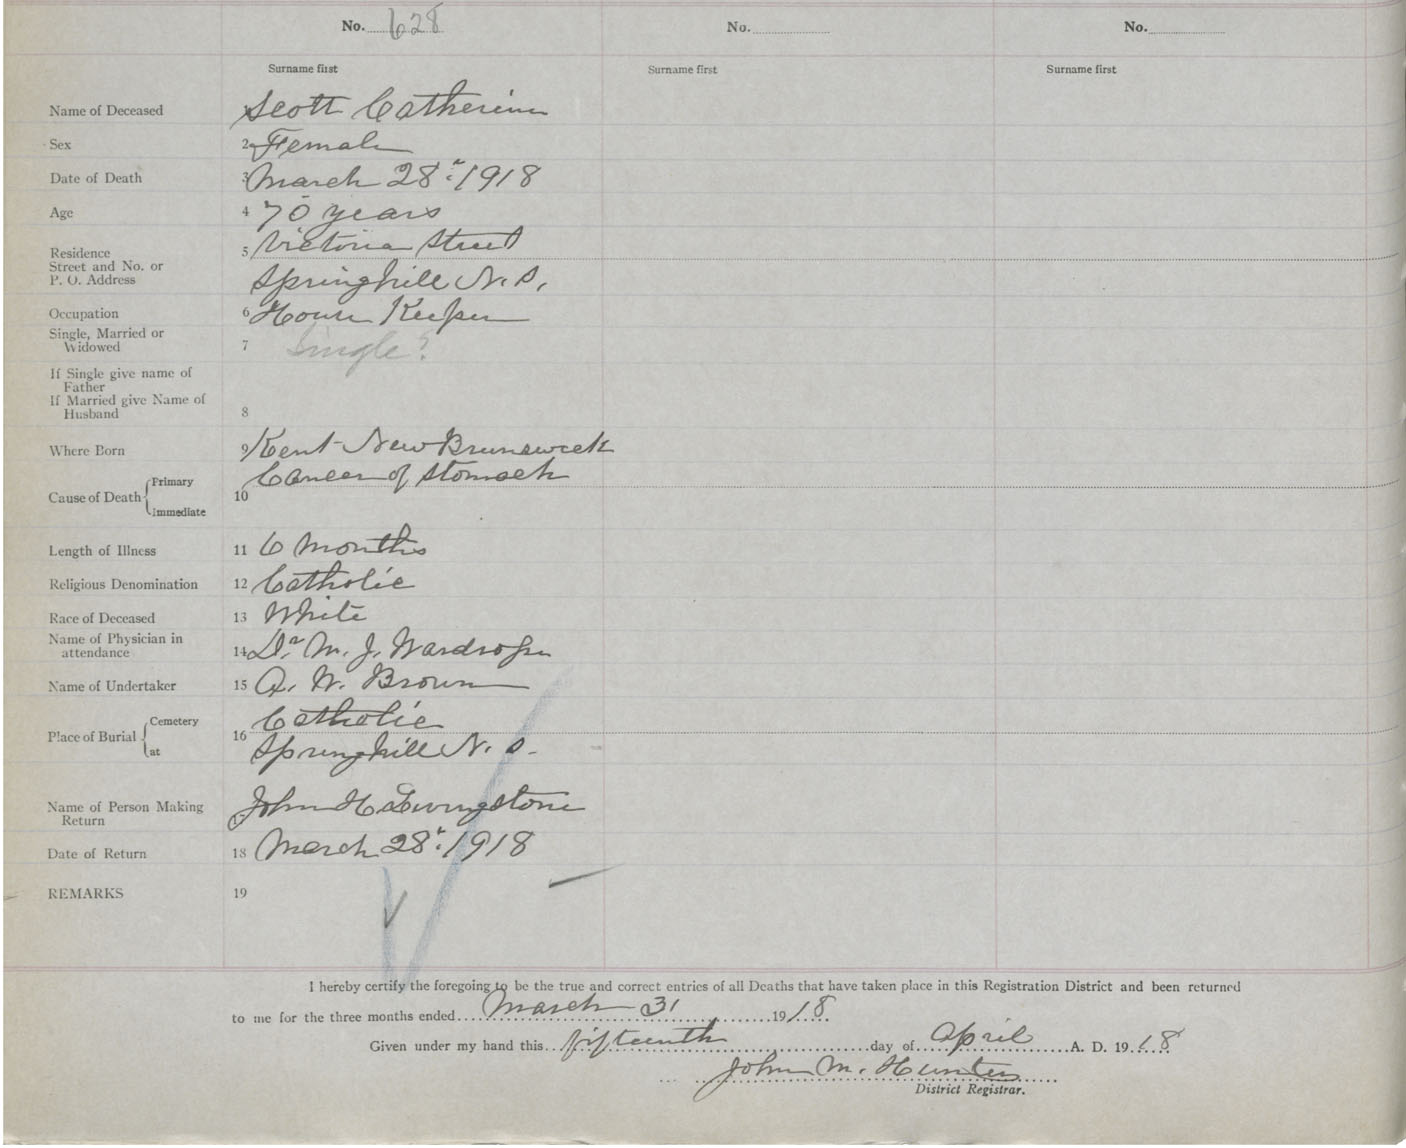 No. 628 No. No.
Surname first Surname first Surname first
Name of Deceased 1 Scott Catherine
Sex 2 Female
Date of Death 3 March 28th 1918
Age 4 70 years
Residence
Street and No. or
P. O. Address
5 Victoria Street
Springhill N. S.
Occupation 6 House Keeper
Single, Married or
Widowed
7 Single?
If Single give name of
Father
If Married give Name of
Husband
8
Where Born 9 Kent New Brunswick
Cause of Death Primary Immediate
10 Cancer of Stomach
Length of Illness 11 6 Months
Religious Denomination 12 Catholic
Race of Deceased 13 White
Name of Physician in
attendance
14 Dr. M. J. Wardrope
Name of Undertaker 15 A. W. Brown
Place of Burial Cemetery at
16 Catholic
Springhill N. S.
Name of Person Making
Return
John H Livingstone
Date of Return 18 March 28th 1918
REMARKS 19
I hereby certify the foregoing to be the true and correct entries of all Deaths that have taken place in this Registration District and been returned
to me for the three months ended March 31 1918.
Given under my hand this fifteenth day of April A. D. 1918
John M. Hunter
District Registrar.